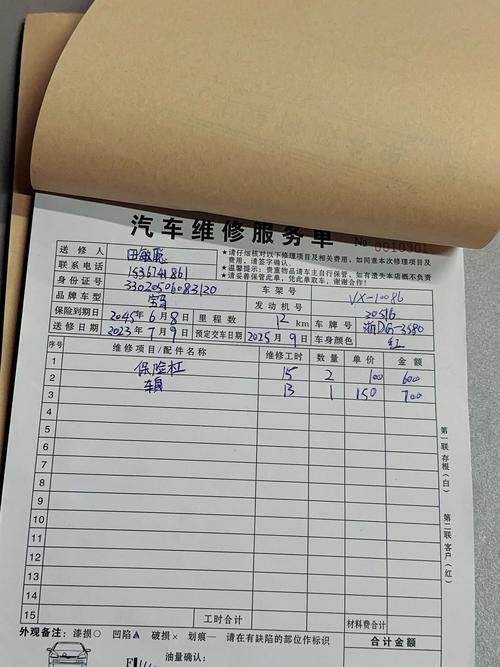 汽车维修服务单
No 0010301
送修人 田敏聪
★请仔细核对以下修理项目及相关费用,如同意本次修理项目及费用,请签字确认。
联系电话
★温馨提示:贵重物品请车主自行保管,如有遗失本店概不负责
★请妥善保管此单,凭此单取车,谢谢合作!
身份证号 3302050683120
品牌车型 宝马 车架号 VX-10086
保险到期日 2045年6月8日 里程数 12 km 发动机号 20516
送修日期 2023年7月9日 预定交车日期 2025年9日 车牌号
车身颜色 红
序号 维修项目/配件名称 维修工时 数量 单价 金额
1 保险杠 15 2 100 600
2 车身 13 1 150 700
3
4
5
6
7
8
9
10
11
12
13
14
15 工时合计 材料费合计
外观备注:漆损○ 凹陷▲ 破损× 划痕— 请在有缺陷的部位作标识 合计金额
油量确认:
第一联 存根(白)
第二联 客户(红)